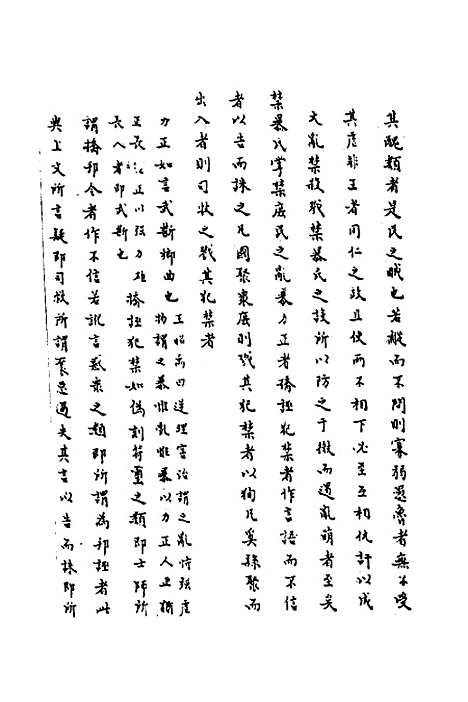 其醜類者是民之賊也若縱而不問則寡弱愚魯者無不受
其虐非王者同仁之政且使而不相下必至互相仇訐以成
大亂禁殺戮禁暴氏之設所以防之于微而遏亂萌者至矣
禁暴氏掌禁庶民之亂暴力正者撟誣犯禁者作言語而不信
者以告而誅之凡國聚衆庶則戮其犯禁者以徇凡奚隸聚而
出入者則司牧之戮其犯禁者
王昭禹曰逆理害治謂之亂恃强虐
物謂之暴惟亂惟暴以力正人正猶
力正如言武斷鄉曲也
王長 正以强力雄
長人者即武斷也
撟誣犯禁如偽刻符璽之類即士師所
謂撟邦令者作不信若訛言惑衆之類即所謂為邦誣者此
與上文所言疑即司救所謂衺惡過夫其言以告而誅即所